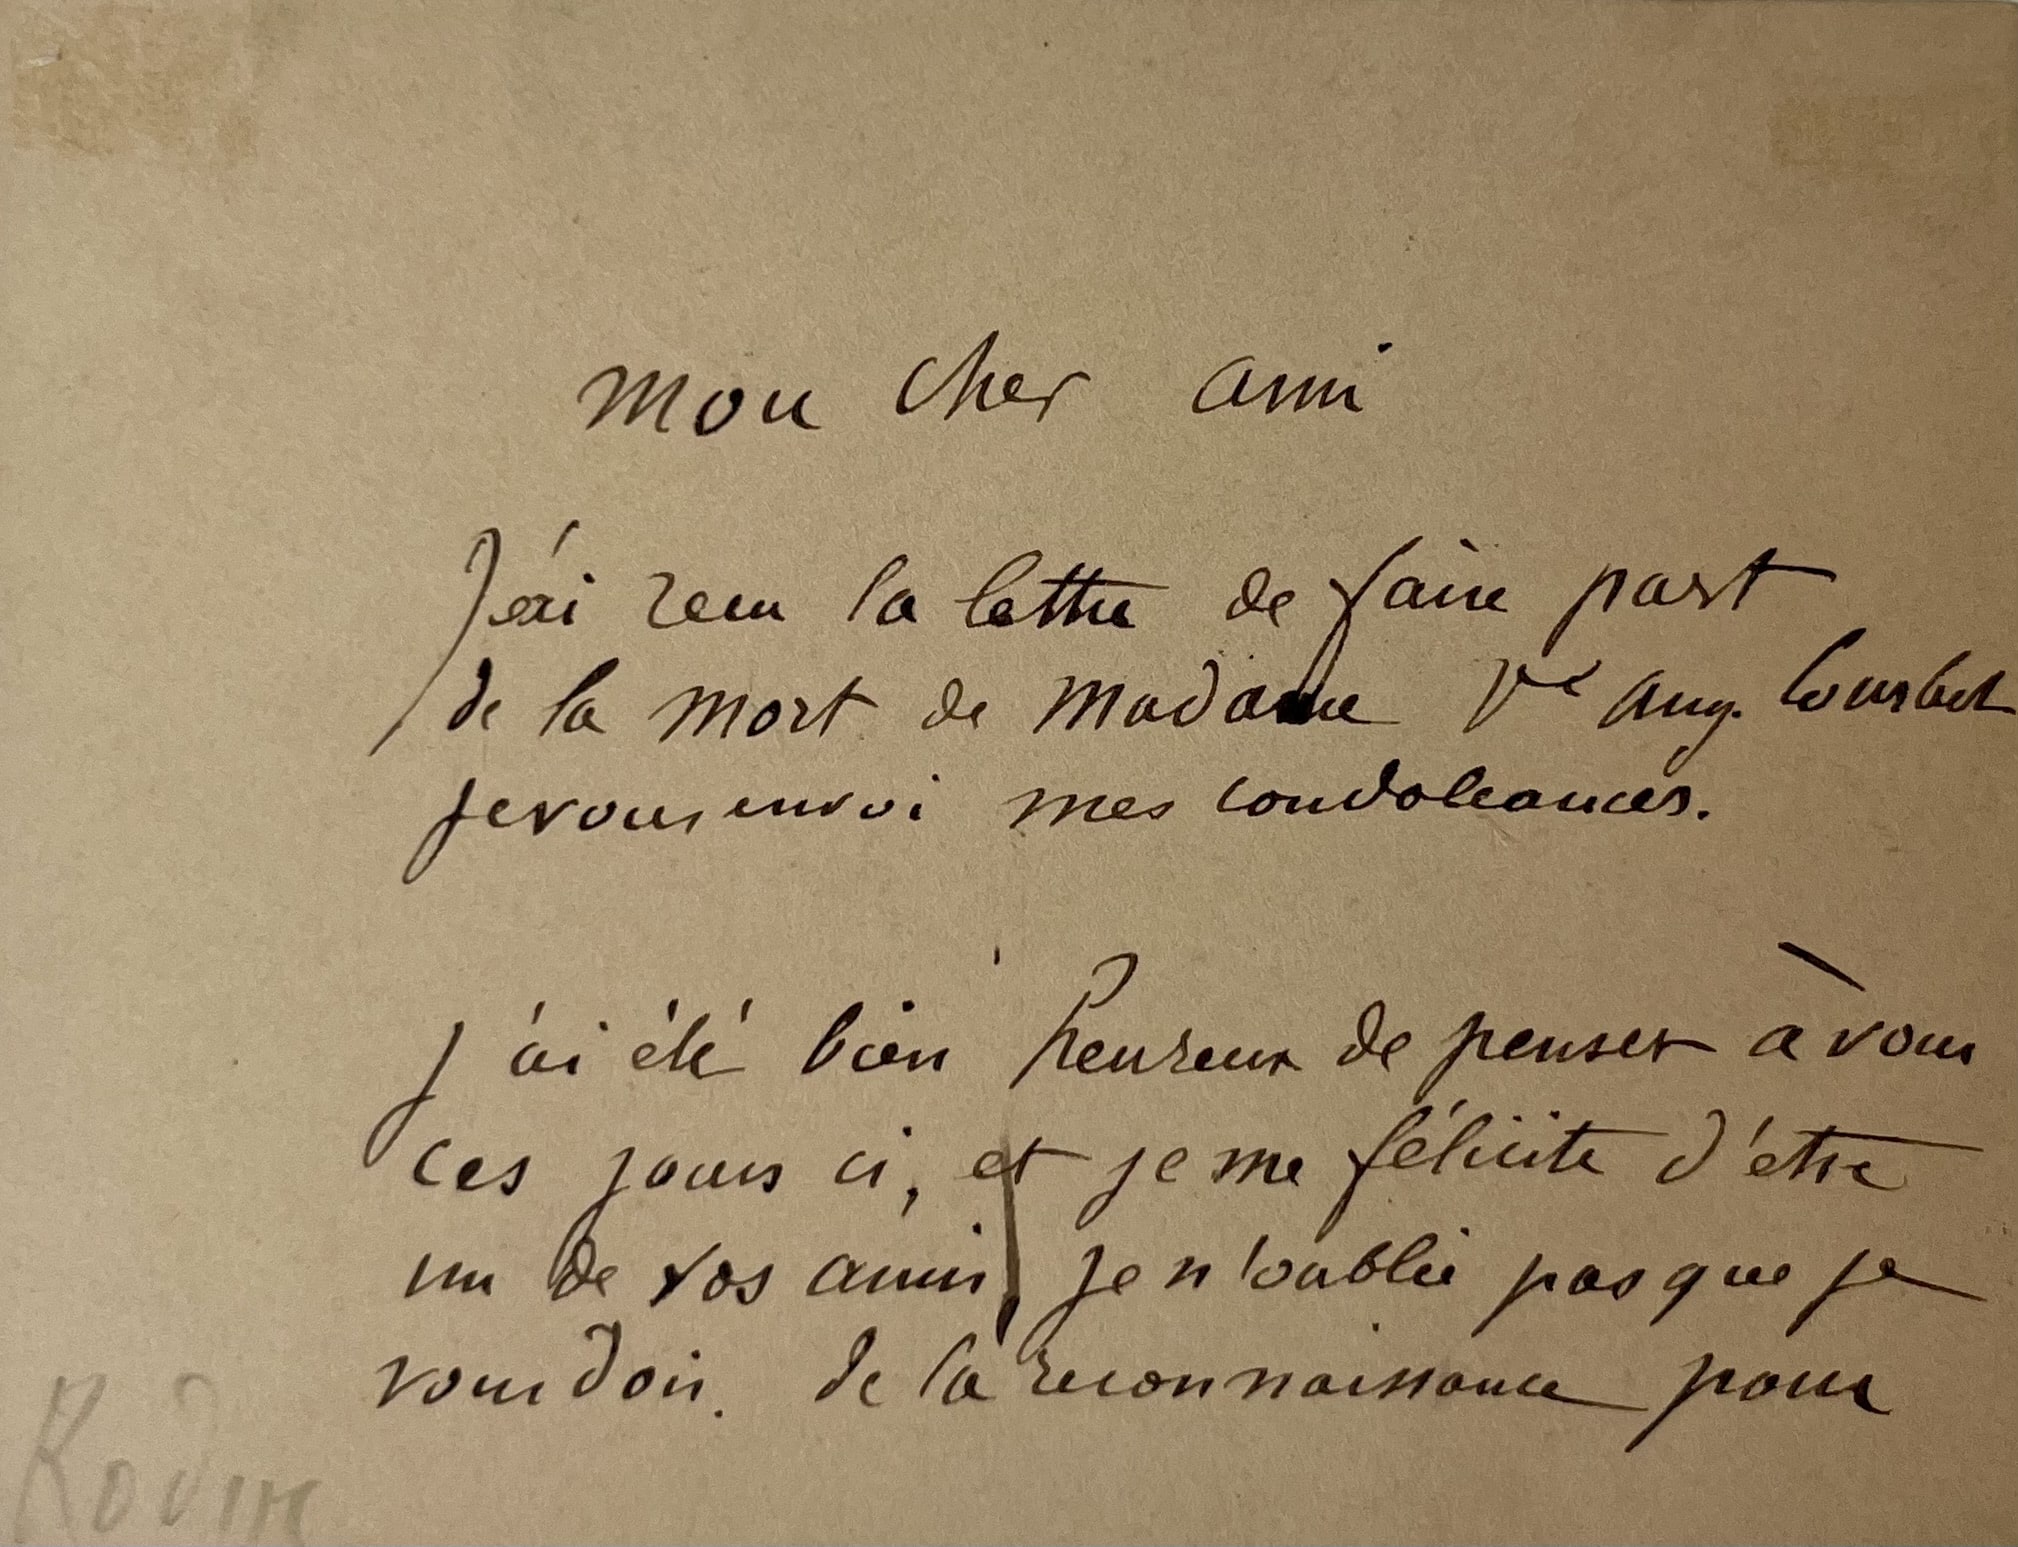 mon cher ami
J'ai recu la lettre de faire part
de la mort de Madame Vve Aug.
je vous envoi mes condoleances.
j'ai été bien heureux de penser à vous
ces jours ci, et je me félicite d'etre
un de vos amis, je n'oublie pas que je
vous dois. de la reconnaissance pour
Rodin